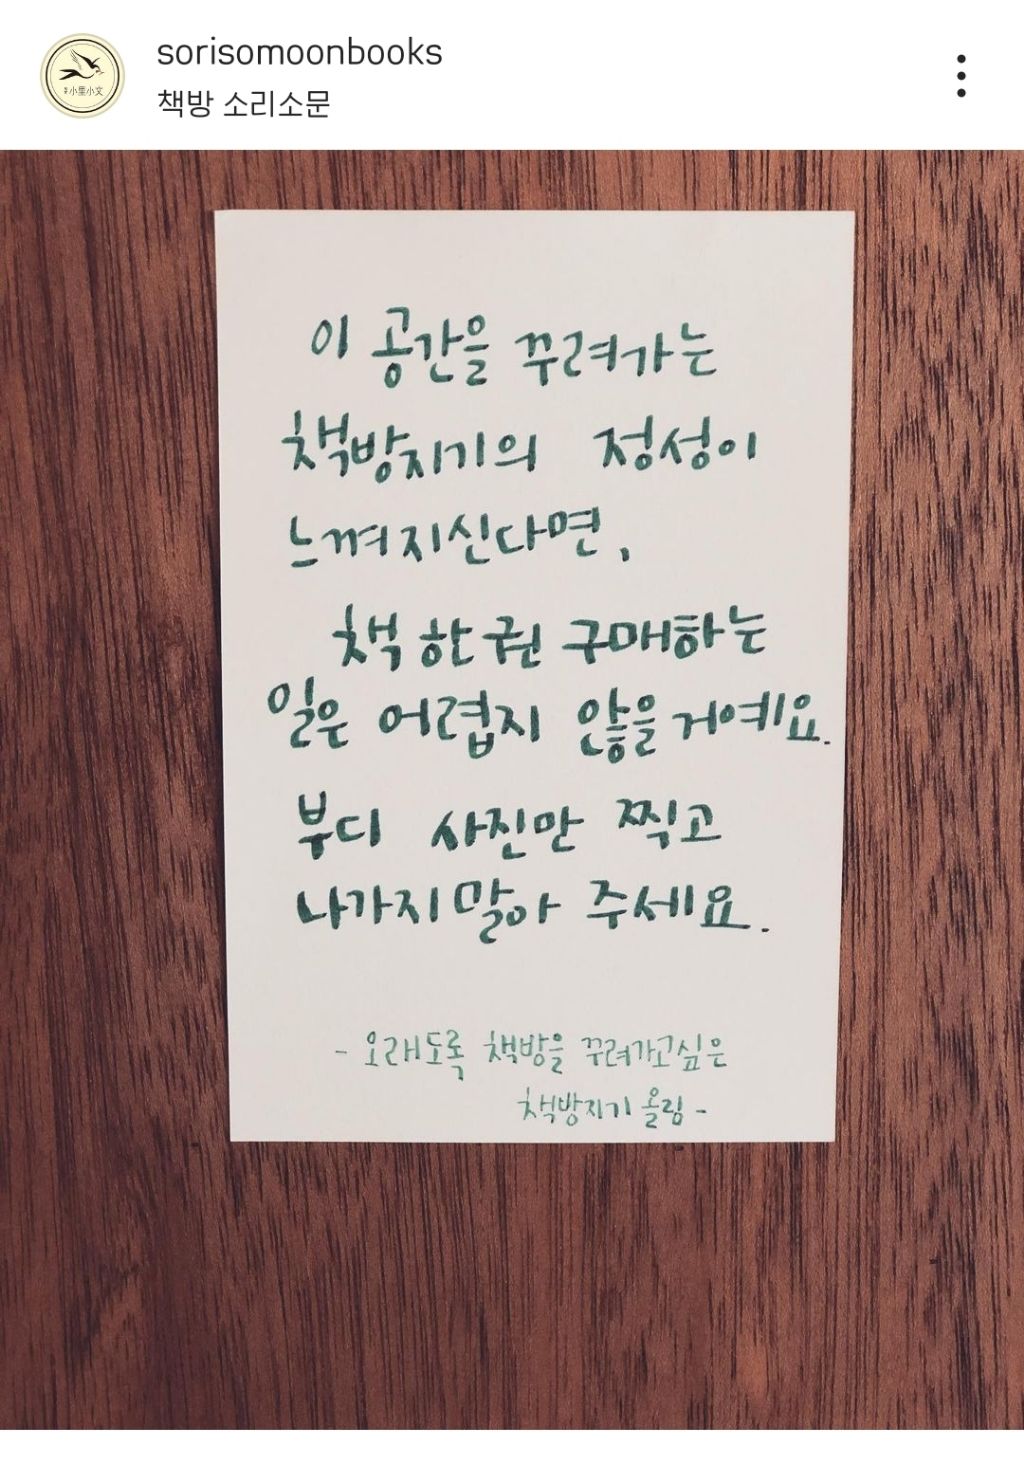 sorisomoonbooks
책방 소리소문
小里小文
이 공간을 꾸려가는
책방지기의 정성이
느껴지신다면,
책 한 권 구매하는
일은 어렵지 않을 거예요.
부디 사진만 찍고
나가지 말아 주세요.
- 오래도록 책방을 꾸려가고싶은
책방지기 올림 -